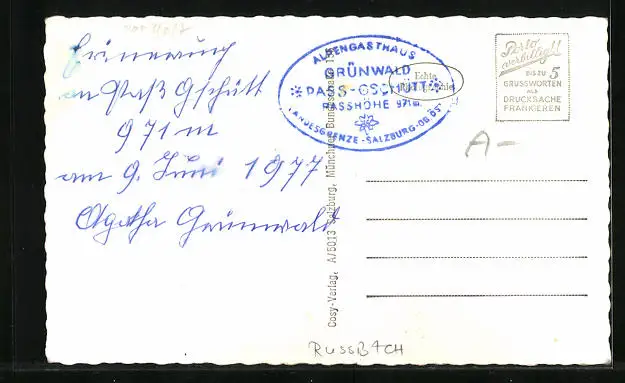 Erinnerung
an Paß Gschütt
971 m
am 9. Juni 1977
Agatha Grünwald
ALPENGASTHAUS
GRÜNWALD
PASS-GSCHÜTT
PASSHÖHE 971m.
LANDESGRENZE-SALZBURG-OB.ÖST.
Echte
Porto
verbilligt!
BIS ZU 5
GRUSSWORTEN
ALS
DRUCKSACHE
FRANKIEREN
A-
Cosy-Verlag, A/5013 Salzburg, Münchner Bundesstraße
RUSSBACH